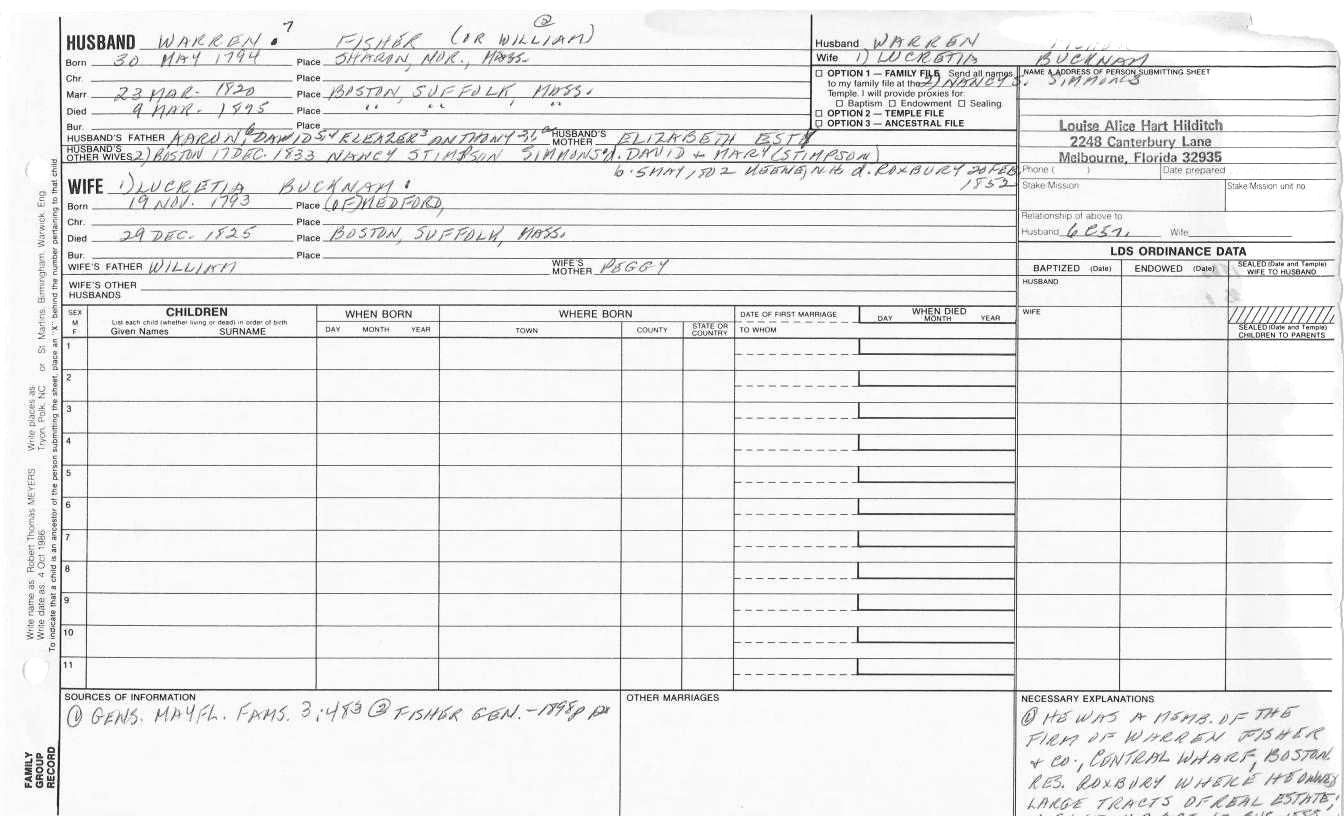 HUSBAND WARREN 7 FISHER (OR WILLIAM) ②
Born 30 MAY 1794 Place SHARON, NOR., MASS.
Chr. Place
Marr. 23 MAR. 1820 Place BOSTON, SUFFOLK, MASS.
Died 9 MAR. 1895 Place " " "
Bur. Place
HUSBAND'S FATHER AARON 6, DAVID 5,4 ELEAZER 3 ANTHONY 2,1 HUSBAND'S MOTHER ELIZABETH ESTY
HUSBAND'S OTHER WIVES 2) BOSTON 17 DEC. 1833 NANCY STIMPSON SIMMONS d. DAVID + MARY (STIMPSON)
b. 5 MAY 1802 KEENE, N.H. d. ROXBURY 20 FEB
1852
WIFE 1) LUCRETIA BUCKNAM
Born 19 NOV. 1793 Place (OF) MEDFORD,
Chr. Place
Died 29 DEC. 1825 Place BOSTON, SUFFOLK, MASS.
Bur. Place
WIFE'S FATHER WILLIAM WIFE'S MOTHER PEGGY
WIFE'S OTHER HUSBANDS
Husband WARREN
Wife 1) LUCRETIA BUCKNAM
2) NANCY S. SIMMONS
☐ OPTION 1 — FAMILY FILE Send all names
to my family file at the
Temple. I will provide proxies for:
☐ Baptism ☐ Endowment ☐ Sealing
☐ OPTION 2 — TEMPLE FILE
☐ OPTION 3 — ANCESTRAL FILE
NAME & ADDRESS OF PERSON SUBMITTING SHEET
Louise Alice Hart Hilditch
2248 Canterbury Lane
Melbourne, Florida 32935
Phone ( ) Date prepared
Stake Mission Stake Mission unit no.
Relationship of above to
Husband 6 C5R. Wife
LDS ORDINANCE DATA
BAPTIZED (Date) ENDOWED (Date) SEALED (Date and Temple) WIFE TO HUSBAND
HUSBAND
WIFE
SEALED (Date and Temple) CHILDREN TO PARENTS
SEX M F
CHILDREN
List each child (whether living or dead) in order of birth
Given Names SURNAME
WHEN BORN
DAY MONTH YEAR
WHERE BORN
TOWN COUNTY STATE OR COUNTRY
DATE OF FIRST MARRIAGE
TO WHOM
WHEN DIED
DAY MONTH YEAR
1
2
3
4
5
6
7
8
9
10
11
SOURCES OF INFORMATION
① GENS. MAYFL. FAMS. 3:483 ② FISHER GEN. - 1898
OTHER MARRIAGES
NECESSARY EXPLANATIONS
① HE WAS A MEMB. OF THE
FIRM OF WARREN FISHER
+ CO., CENTRAL WHARF, BOSTON.
RES. ROXBURY WHERE HE OWNED
LARGE TRACTS OF REAL ESTATE;
Write name as: Robert Thomas MEYERS Write places as: Tryon, Polk, NC or St. Martins, Birmingham, Warwick, Eng
Write date as: 4 Oct 1986
To indicate that a child is an ancestor of the person submitting the sheet, place an "X" behind the number pertaining to that child
FAMILY
GROUP
RECORD